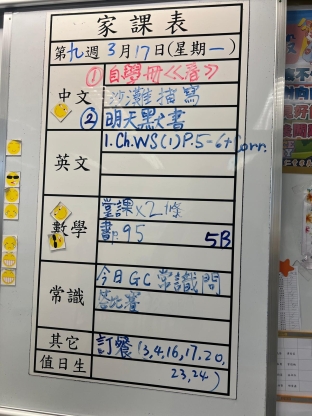 家課表
第九週3月17日(星期一)
中文
①自學冊《春》
沙灘描寫
②明天默書
英文
1. Ch.WS(1)P.5-6+Corr.
數學
堂課x2條
書P.95
5B
常識
今日GC常識問
答比賽
其它
訂餐(3,4,16,17,20,
值日生
23,24)